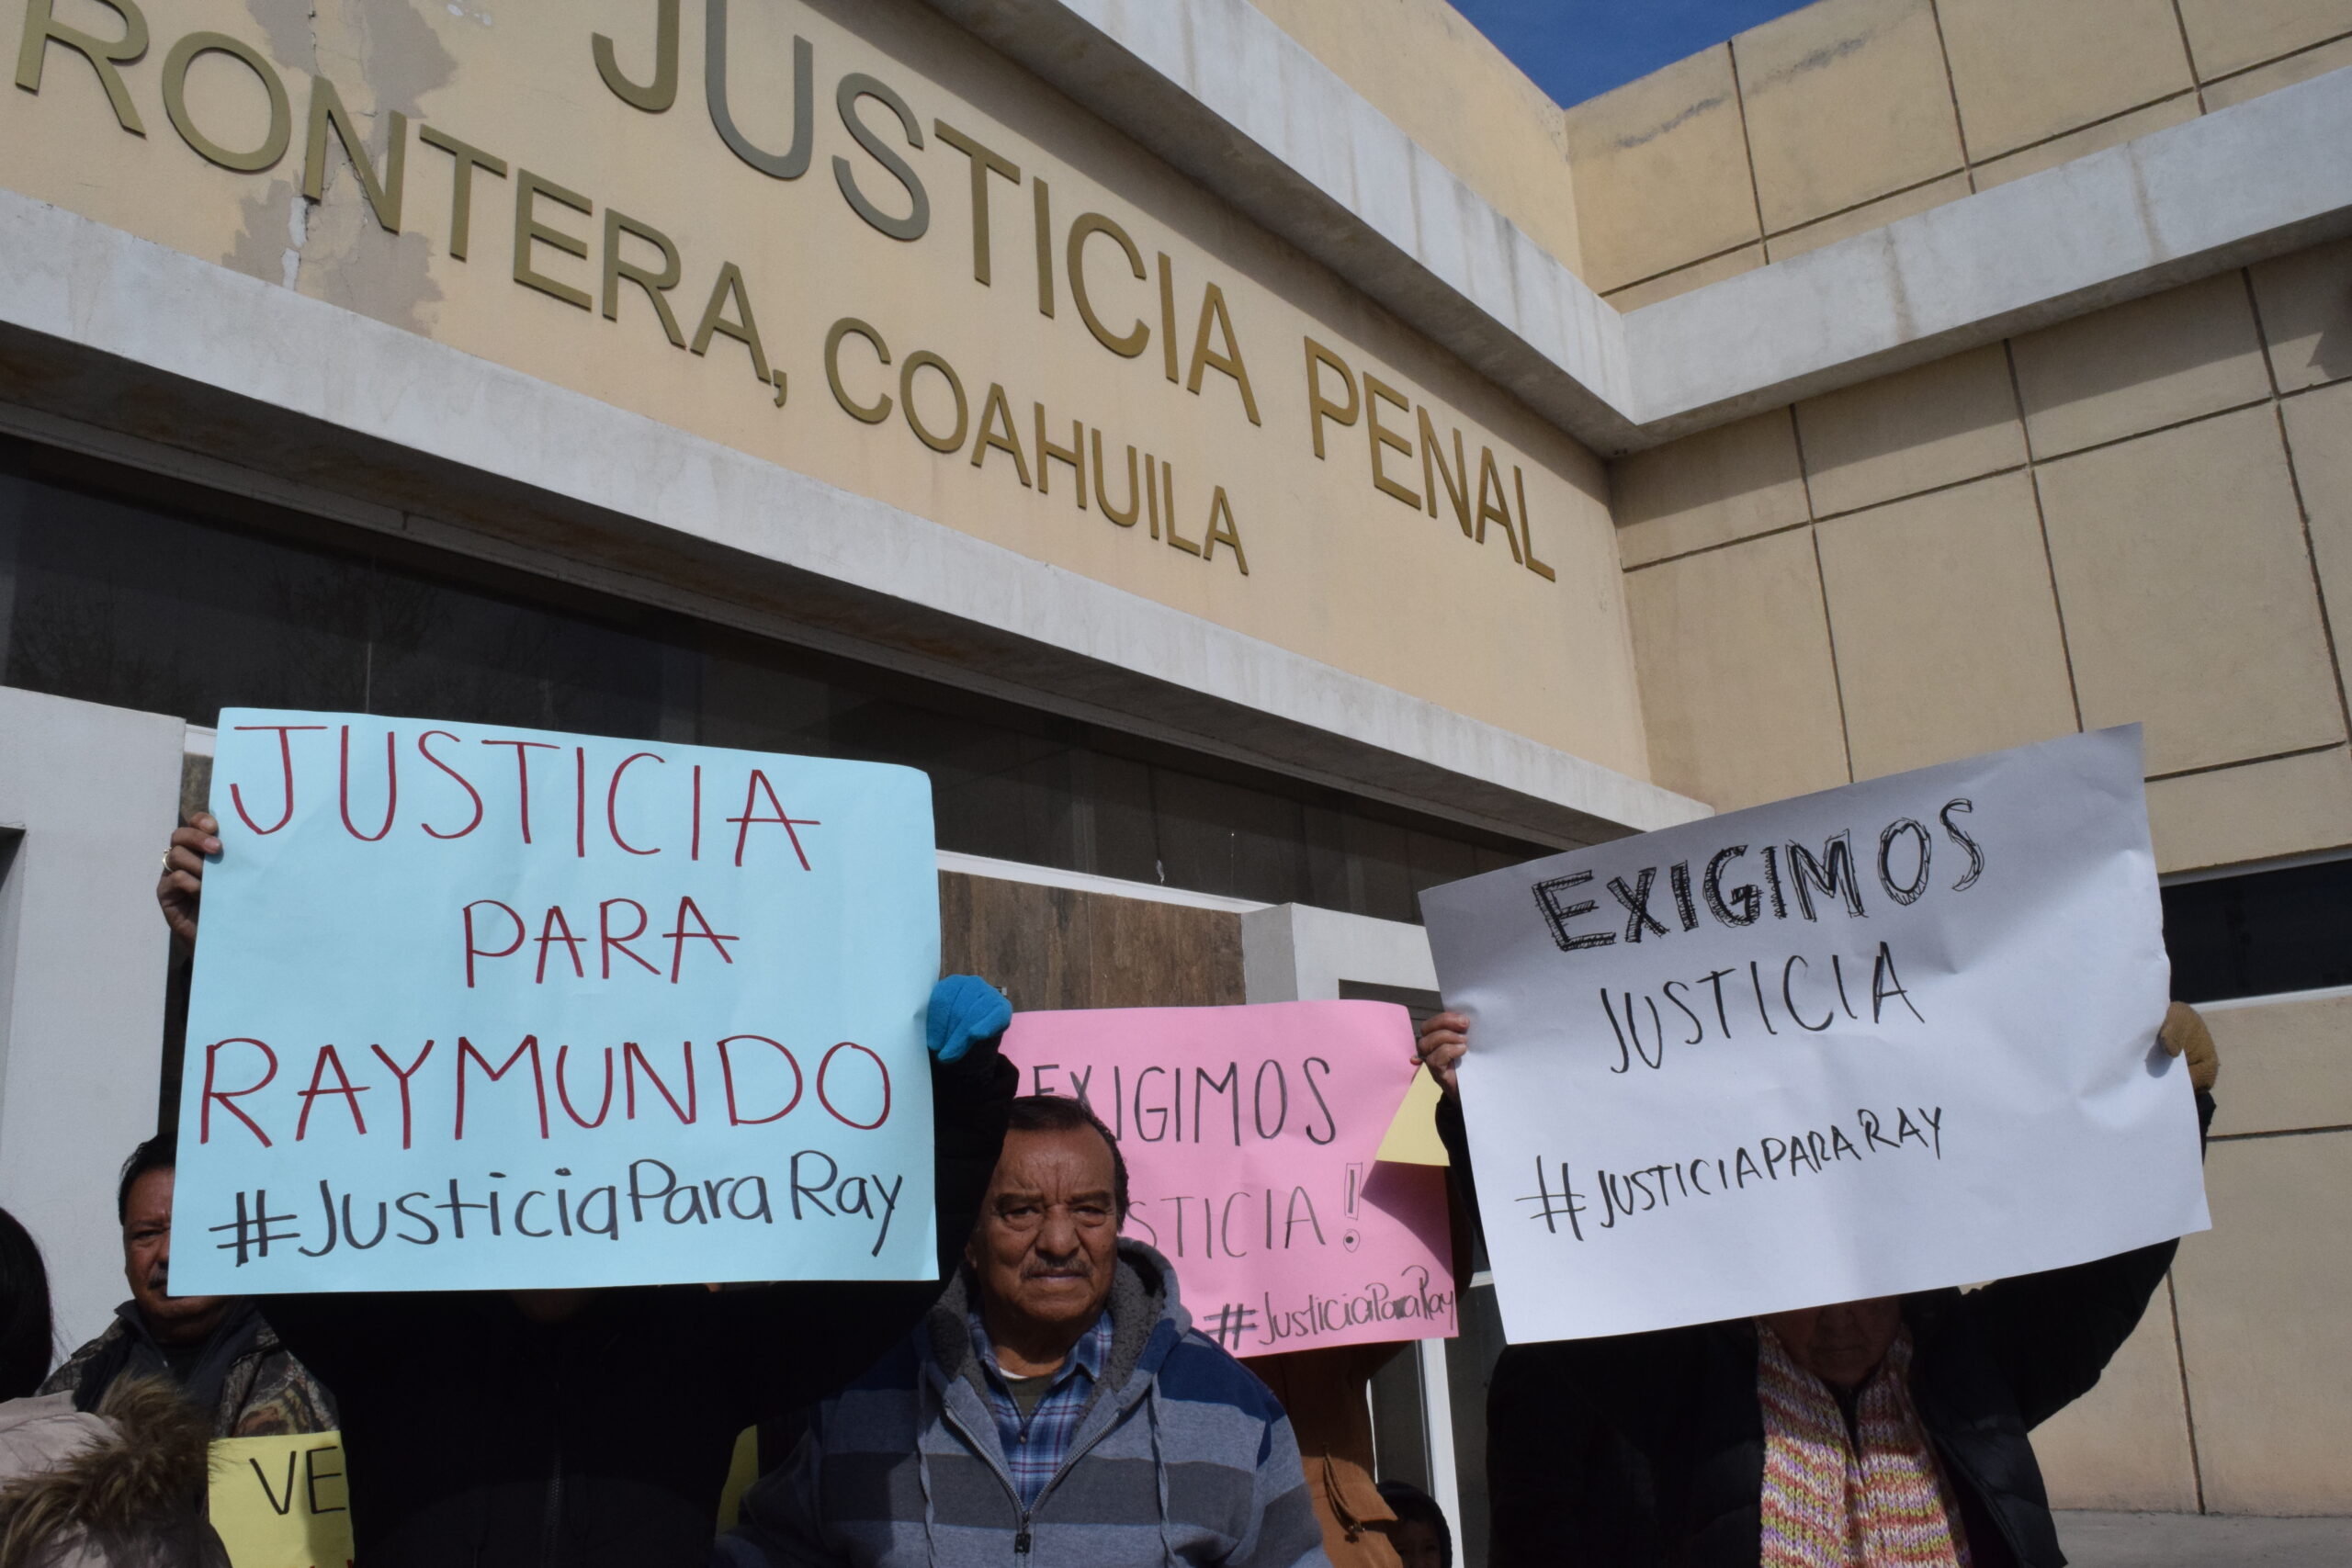 JUSTICIA PENAL
RONTERA, COAHUILA
JUSTICIA
PARA
RAYMUNDO
#JusticiaParaRay
EXIGIMOS
STICIA!
#JusticiaParaRay
EXIGIMOS
JUSTICIA
#JUSTICIAPARARAY
VE